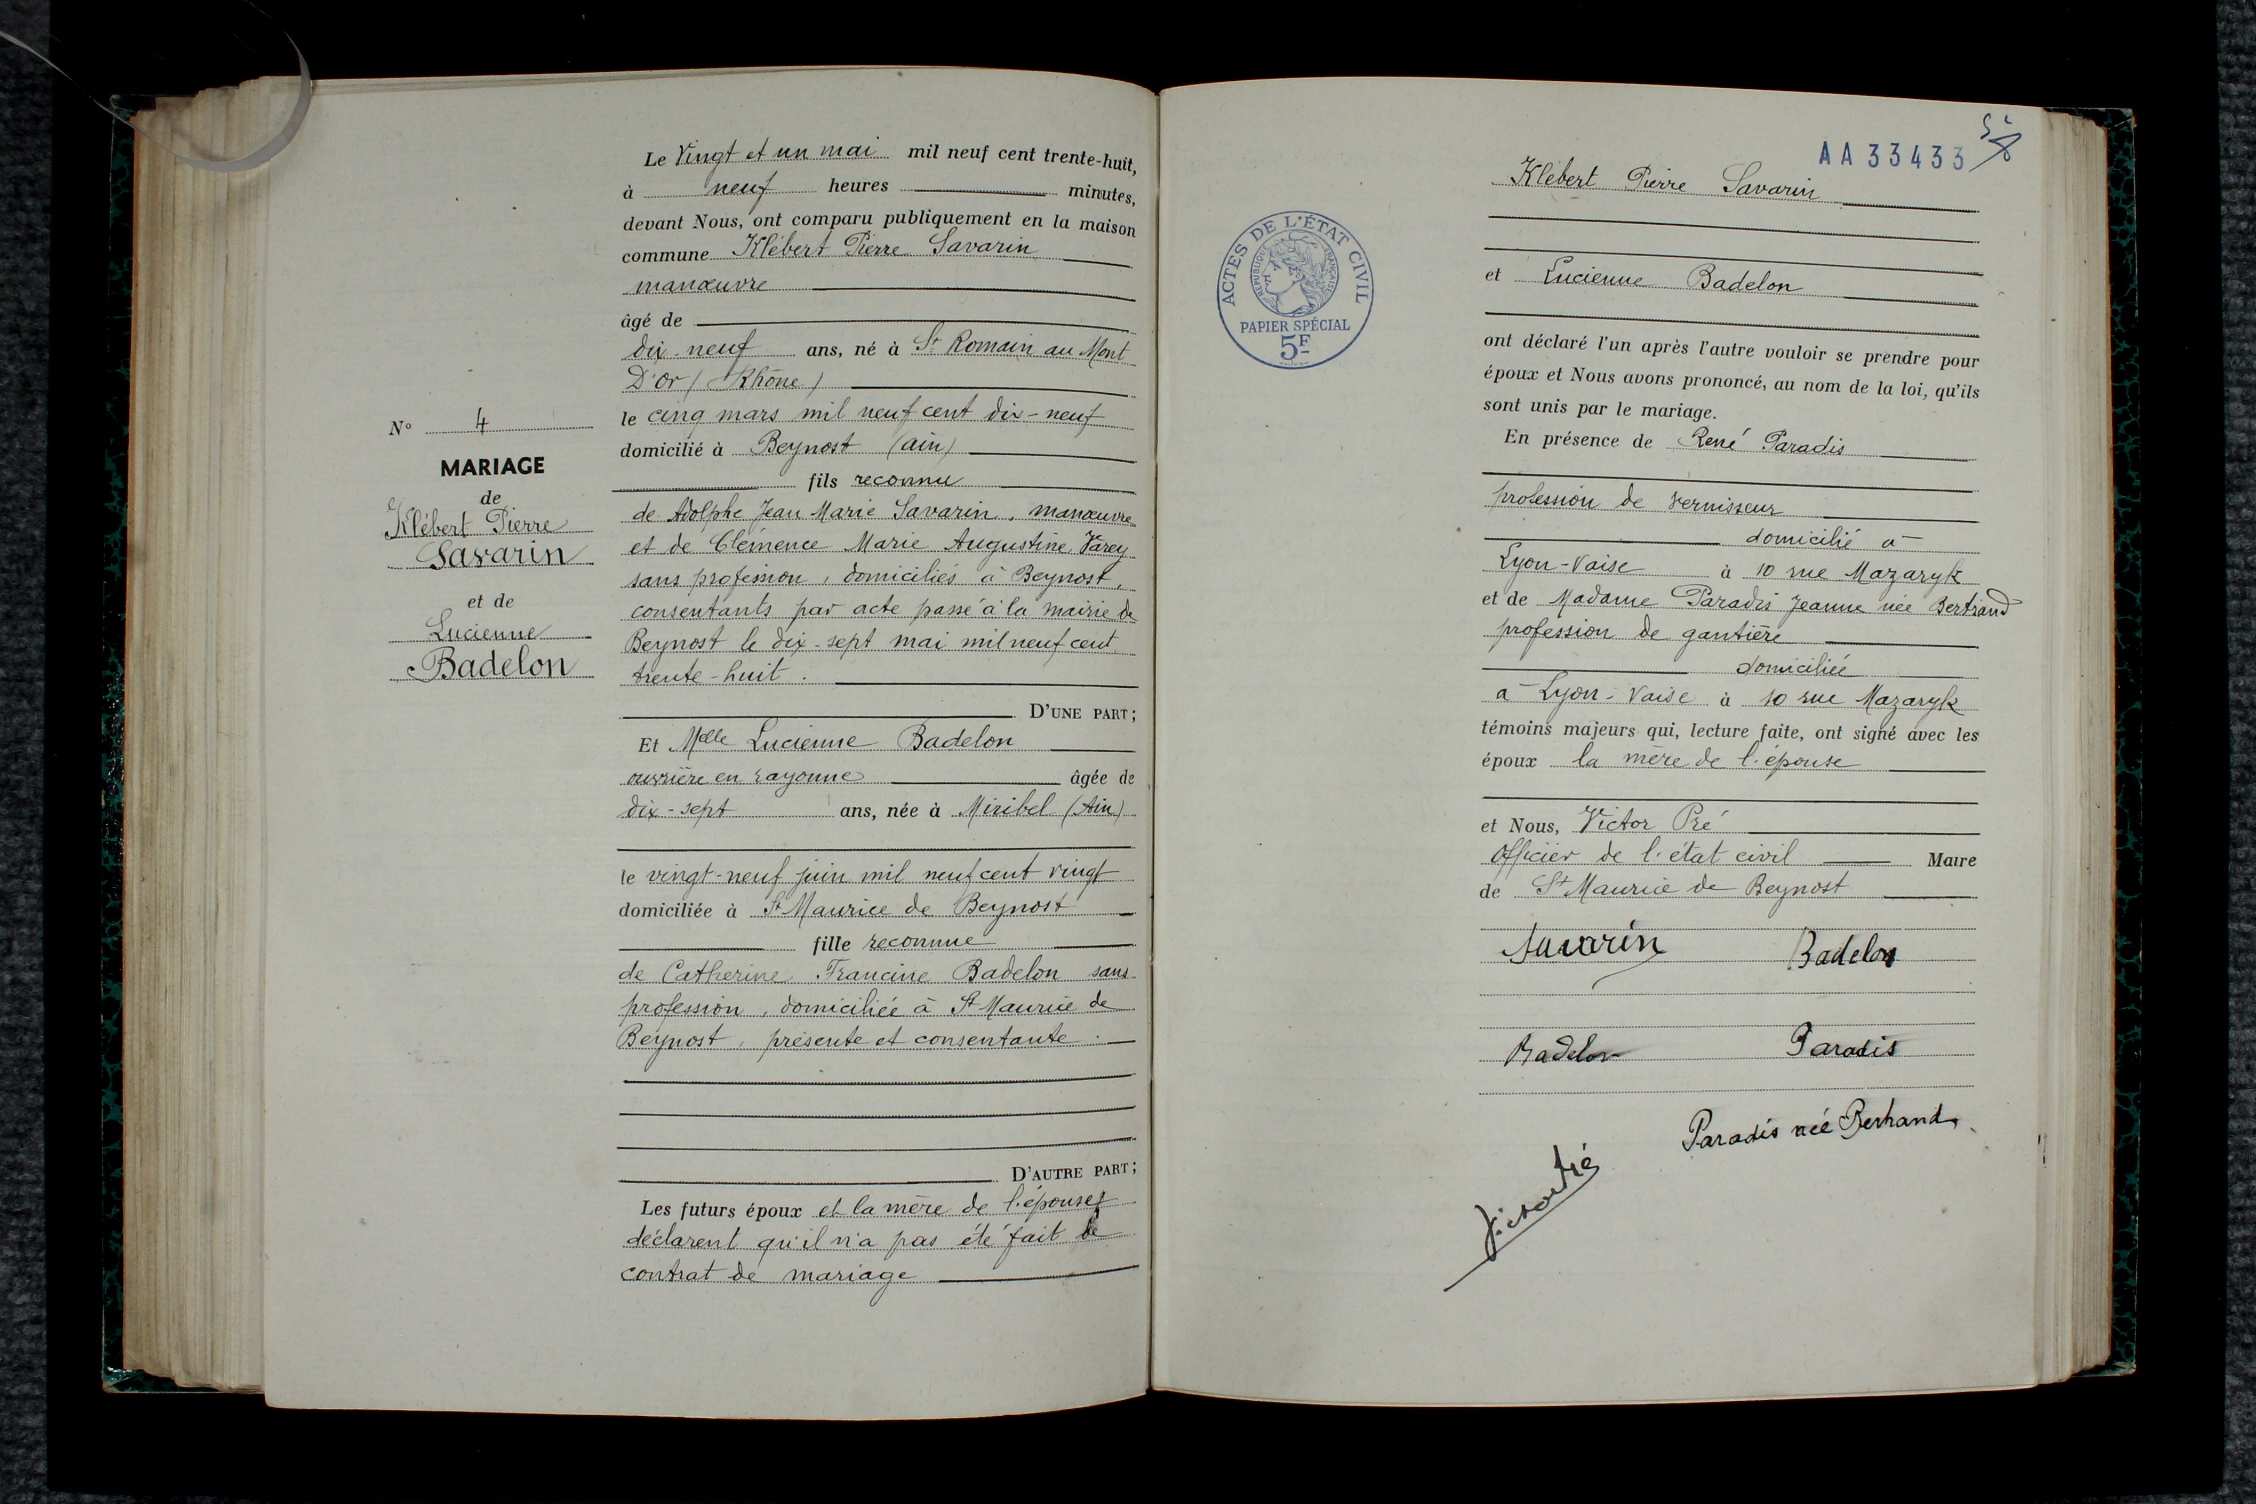 N° 4
MARIAGE
de
Klébert Pierre
Savarin
et de
Lucienne
Badelon
Le Vingt et un mai mil neuf cent trente-huit,
à neuf heures minutes,
devant Nous, ont comparu publiquement en la maison
commune Klébert Pierre Savarin
manœuvre
âgé de
dix-neuf ans, né à St Romain au Mont
D'or (Rhône)
le cinq mars mil neuf cent dix-neuf
domicilié à Beynost (ain)
fils reconnu
de Adolphe Jean Marie Savarin, manœuvre
et de Clémence Marie Augustine Varey
sans profession, domiciliés à Beynost,
consentants par acte passé à la mairie de
Beynost le dix-sept mai mil neuf cent
trente-huit.
D'UNE PART;
Et Melle Lucienne Badelon
ouvrière en rayonne âgée de
dix-sept ans, née à Miribel (Ain)
le vingt-neuf juin mil neuf cent vingt
domiciliée à St Maurice de Beynost
fille reconnue
de Catherine Francine Badelon sans
profession, domiciliée à St Maurice de
Beynost, présente et consentante.
D'AUTRE PART;
Les futurs époux et la mère de l'épouse
déclarent qu'il n'a pas été fait de
contrat de mariage
AA33433
ACTES DE L'ÉTAT CIVIL
RÉPUBLIQUE FRANÇAISE
PAPIER SPÉCIAL
5F
Klébert Pierre Savarin
et Lucienne Badelon
ont déclaré l'un après l'autre vouloir se prendre pour
époux et Nous avons prononcé, au nom de la loi, qu'ils
sont unis par le mariage.
En présence de René Paradis
profession de vernisseur
domicilié à
Lyon-Vaise à 10 rue Mazaryk
et de Madame Paradis Jeanne née Bertrand
profession de gantière
domiciliée
a Lyon-Vaise à 10 rue Mazaryk
témoins majeurs qui, lecture faite, ont signé avec les
époux la mère de l'épouse
et Nous, Victor Pré
Officier de l'état civil Maire
de St Maurice de Beynost
Savarin Badelon
Badelon Paradis
Paradis née Bertrand
Victor Pré